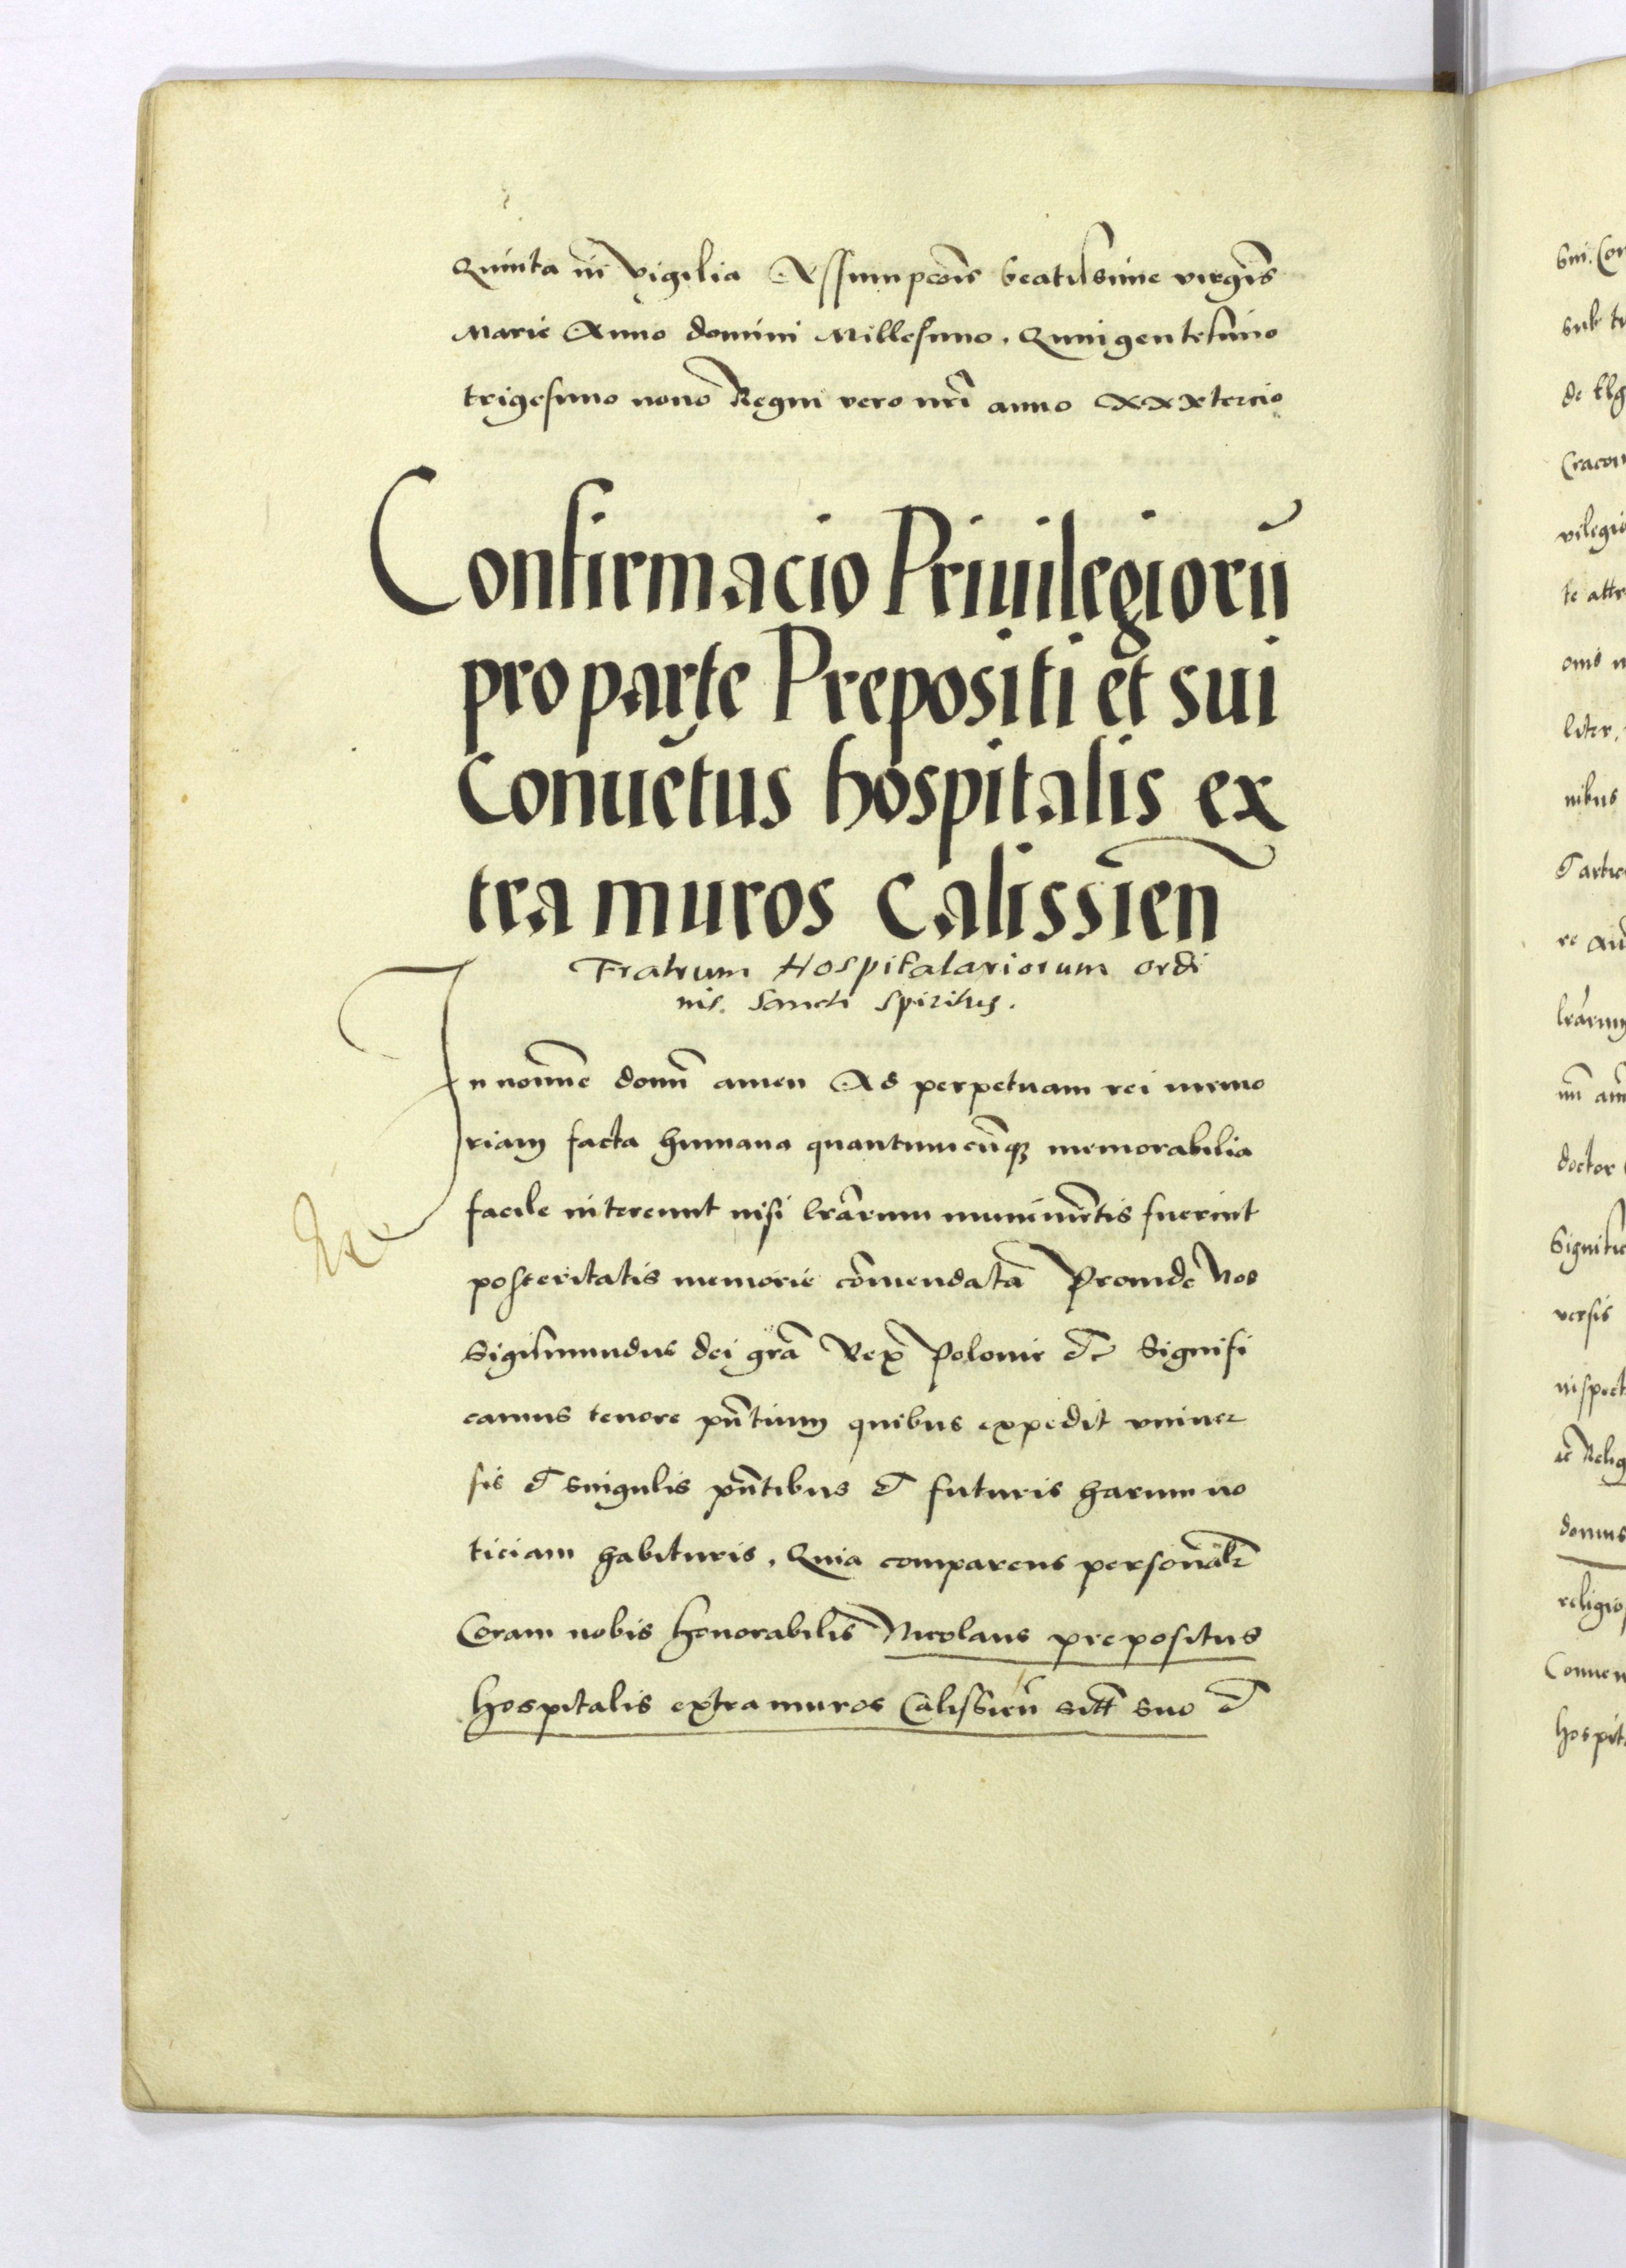 Quinta in vigilia Assumpcõis beatissime virgĩs
Marie Anno domini Millesimo, Quingentesimo
trigesimo nono Regni vero nr̃i anno xxxtercio
Confirmacio Priuilegiorũ
pro parte Prepositi et sui
Conuẽtus hospitalis ex
tra muros Calissien̄
Fratrum Hospitalariorum ordi
nis. Sancti Spiritus.
In noĩne domĩ amen Ad perpetuam rei memo
riam facta humana quantumcũq3 memorabilia
facile intereunt nisi lr̃arum munimẽtis fuerint
posteritatis memorie cõmendata Proinde Nos
Sigismundus dei gr̃a Rex Polonie etc Signifi
camus tenore pñtium quibus expedit vniuer
sis et singulis pñtibus et futuris harum no
ticiam habituris, Quia comparens personalr̃
Coram nobis honorabilis Nicolaus prepositus
hospitalis extra muros Calissien̄ sitt̃ suo et
Sm. Con
sub ti
de Elg
Cracoui
vilegio
nibus
doctor
Signific
versis
inspect
Relig
domus
religio
Conuen
hospit